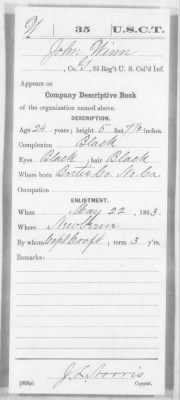 W | 35 | U.S.C.T.
John Winn
, Co. G, 35 Reg't U. S. Col'd Inf.
Appears on
Company Descriptive Book
of the organization named above.
DESCRIPTION.
Age 24 years; height 5 feet 7 1/2 inches.
Complexion Black
Eyes Black; hair Black
Where born Bertie Co. No. Ca.
Occupation
ENLISTMENT.
When May 22, 1863.
Where New Bern
By whom Capt Croft; term 3 y'rs.
Remarks:
J. L. Norris
Copyist.